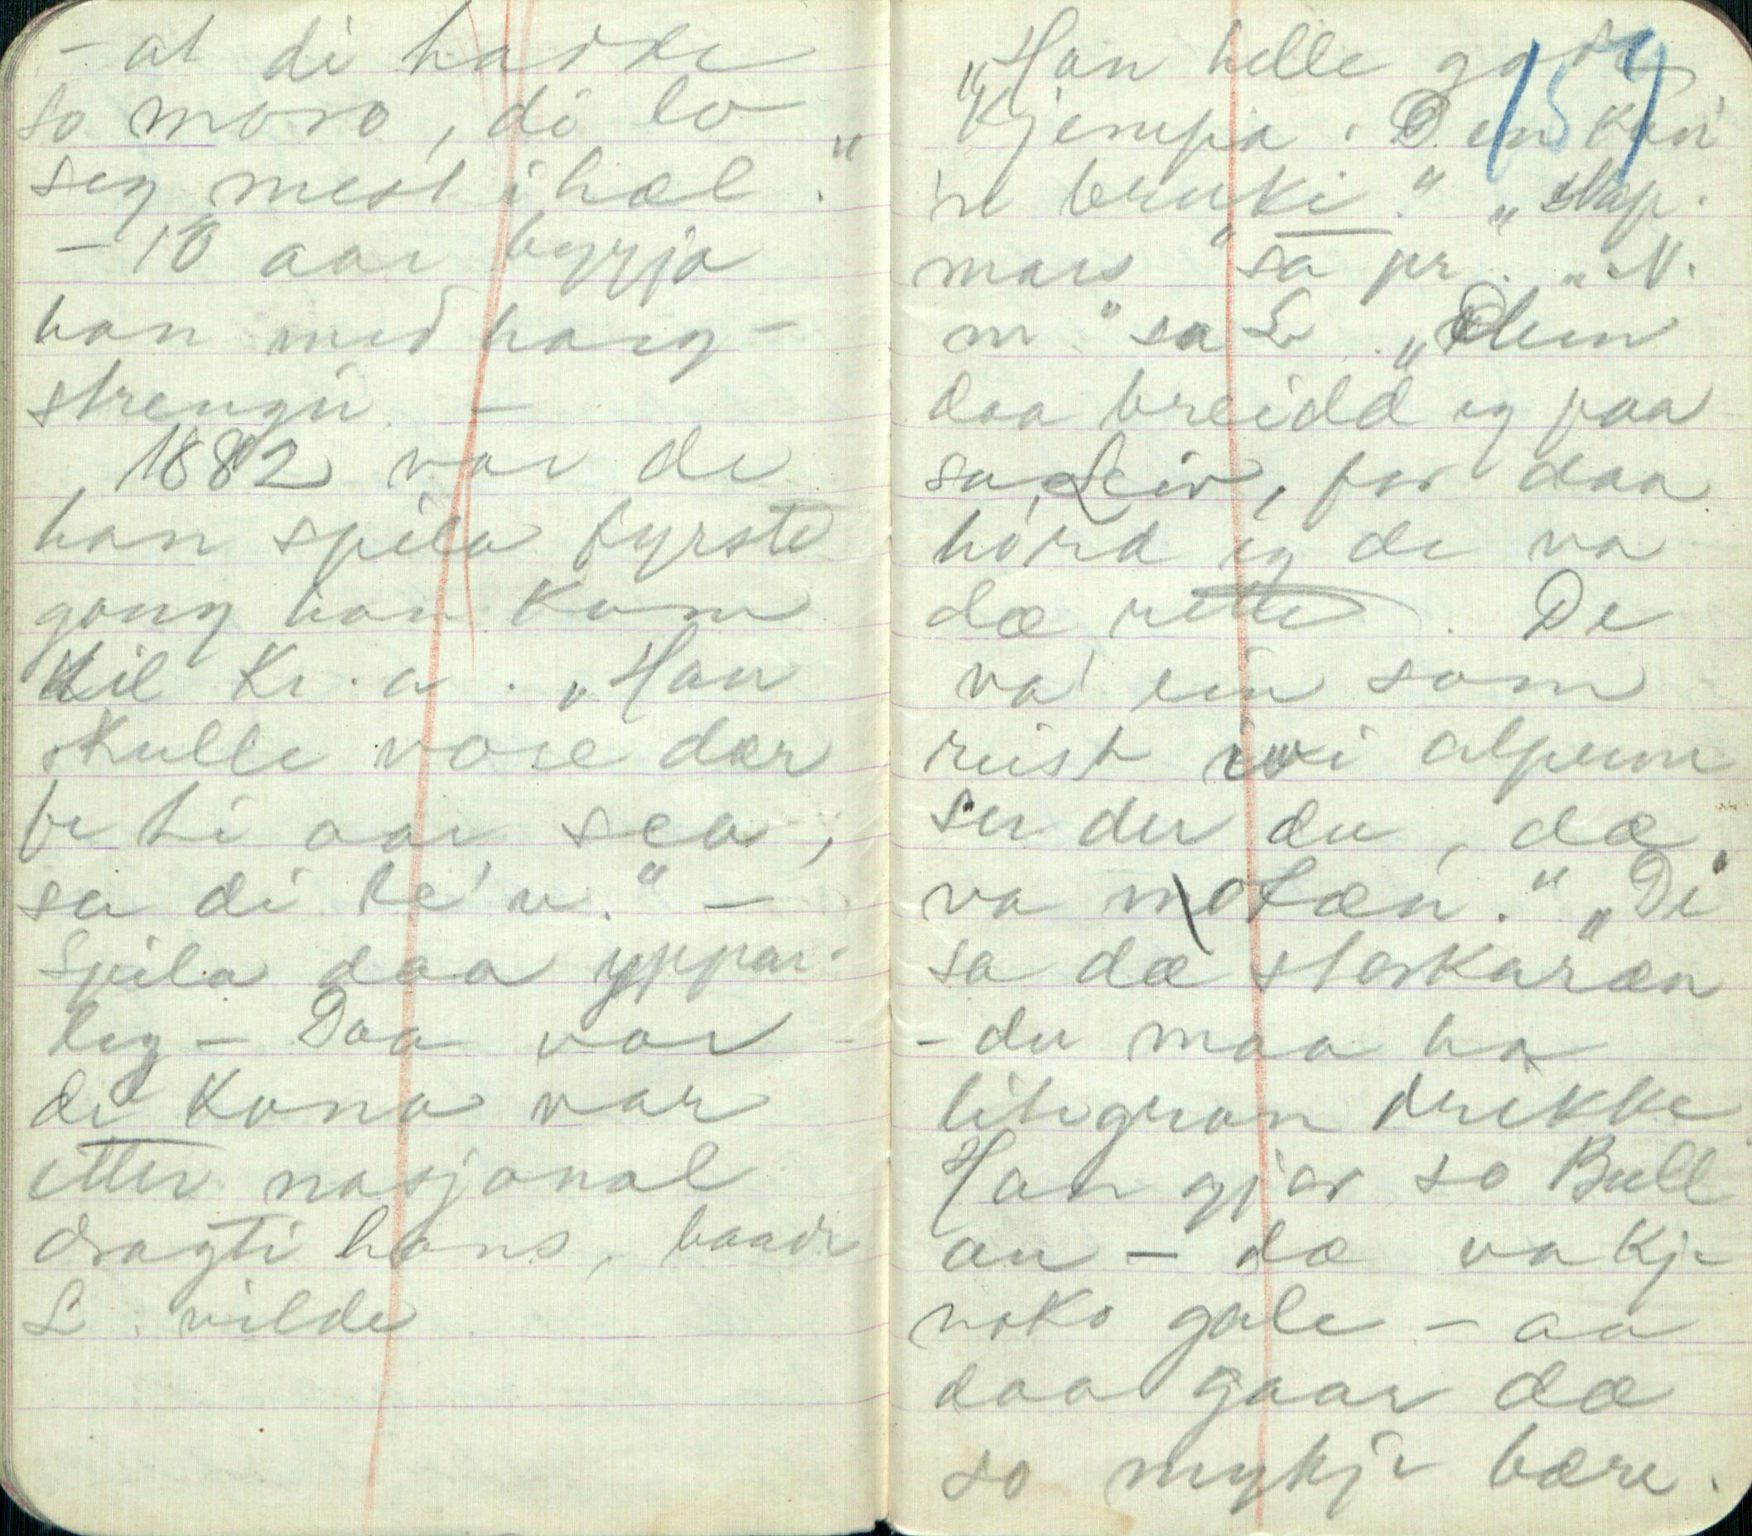 - at di hadde
so moro, di lo
seg mest ihæl."
- 10 aar byrja
han med harg-
strengji. -
1882 var de
han spila fyrste
gong han kom
til Kr.a. "Han
skulle vore dær
fe ti aar sea,
sa di te'n." -
Spila daa yppar-
leg - Daa var
di Kona var
etter nasjonal
dragti hans, baade
L. vilde
159
"Han helle gode
Kjempa. Den kan
'n bruki." "Slap.
mars" sa pr. "N.
m" sa L. "
daa breidd eg paa
sa Leiv, for daa
hørd eg de va
dæ rette. De
va' ein som
reist ivi alpenn
ser der du, dæ
va moLæn." "Di
sa dæ storkaræn
- du maa ha
litegran drikke
Han gjer so Bull
au - dæ va kje
noko gale - aa
daa gaar dæ
so mykje bære.